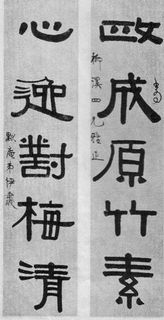 政成原竹素
柳溪四兄雅正
心迹對梅清
默庵弟伊秉綬